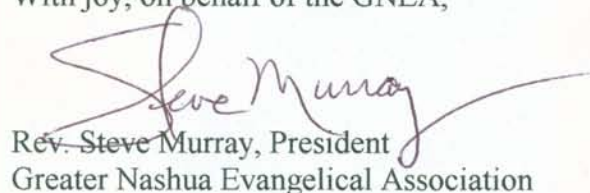 With joy, on behalf of the GNEA,
Steve Murray
Rev. Steve Murray, President
Greater Nashua Evangelical Association